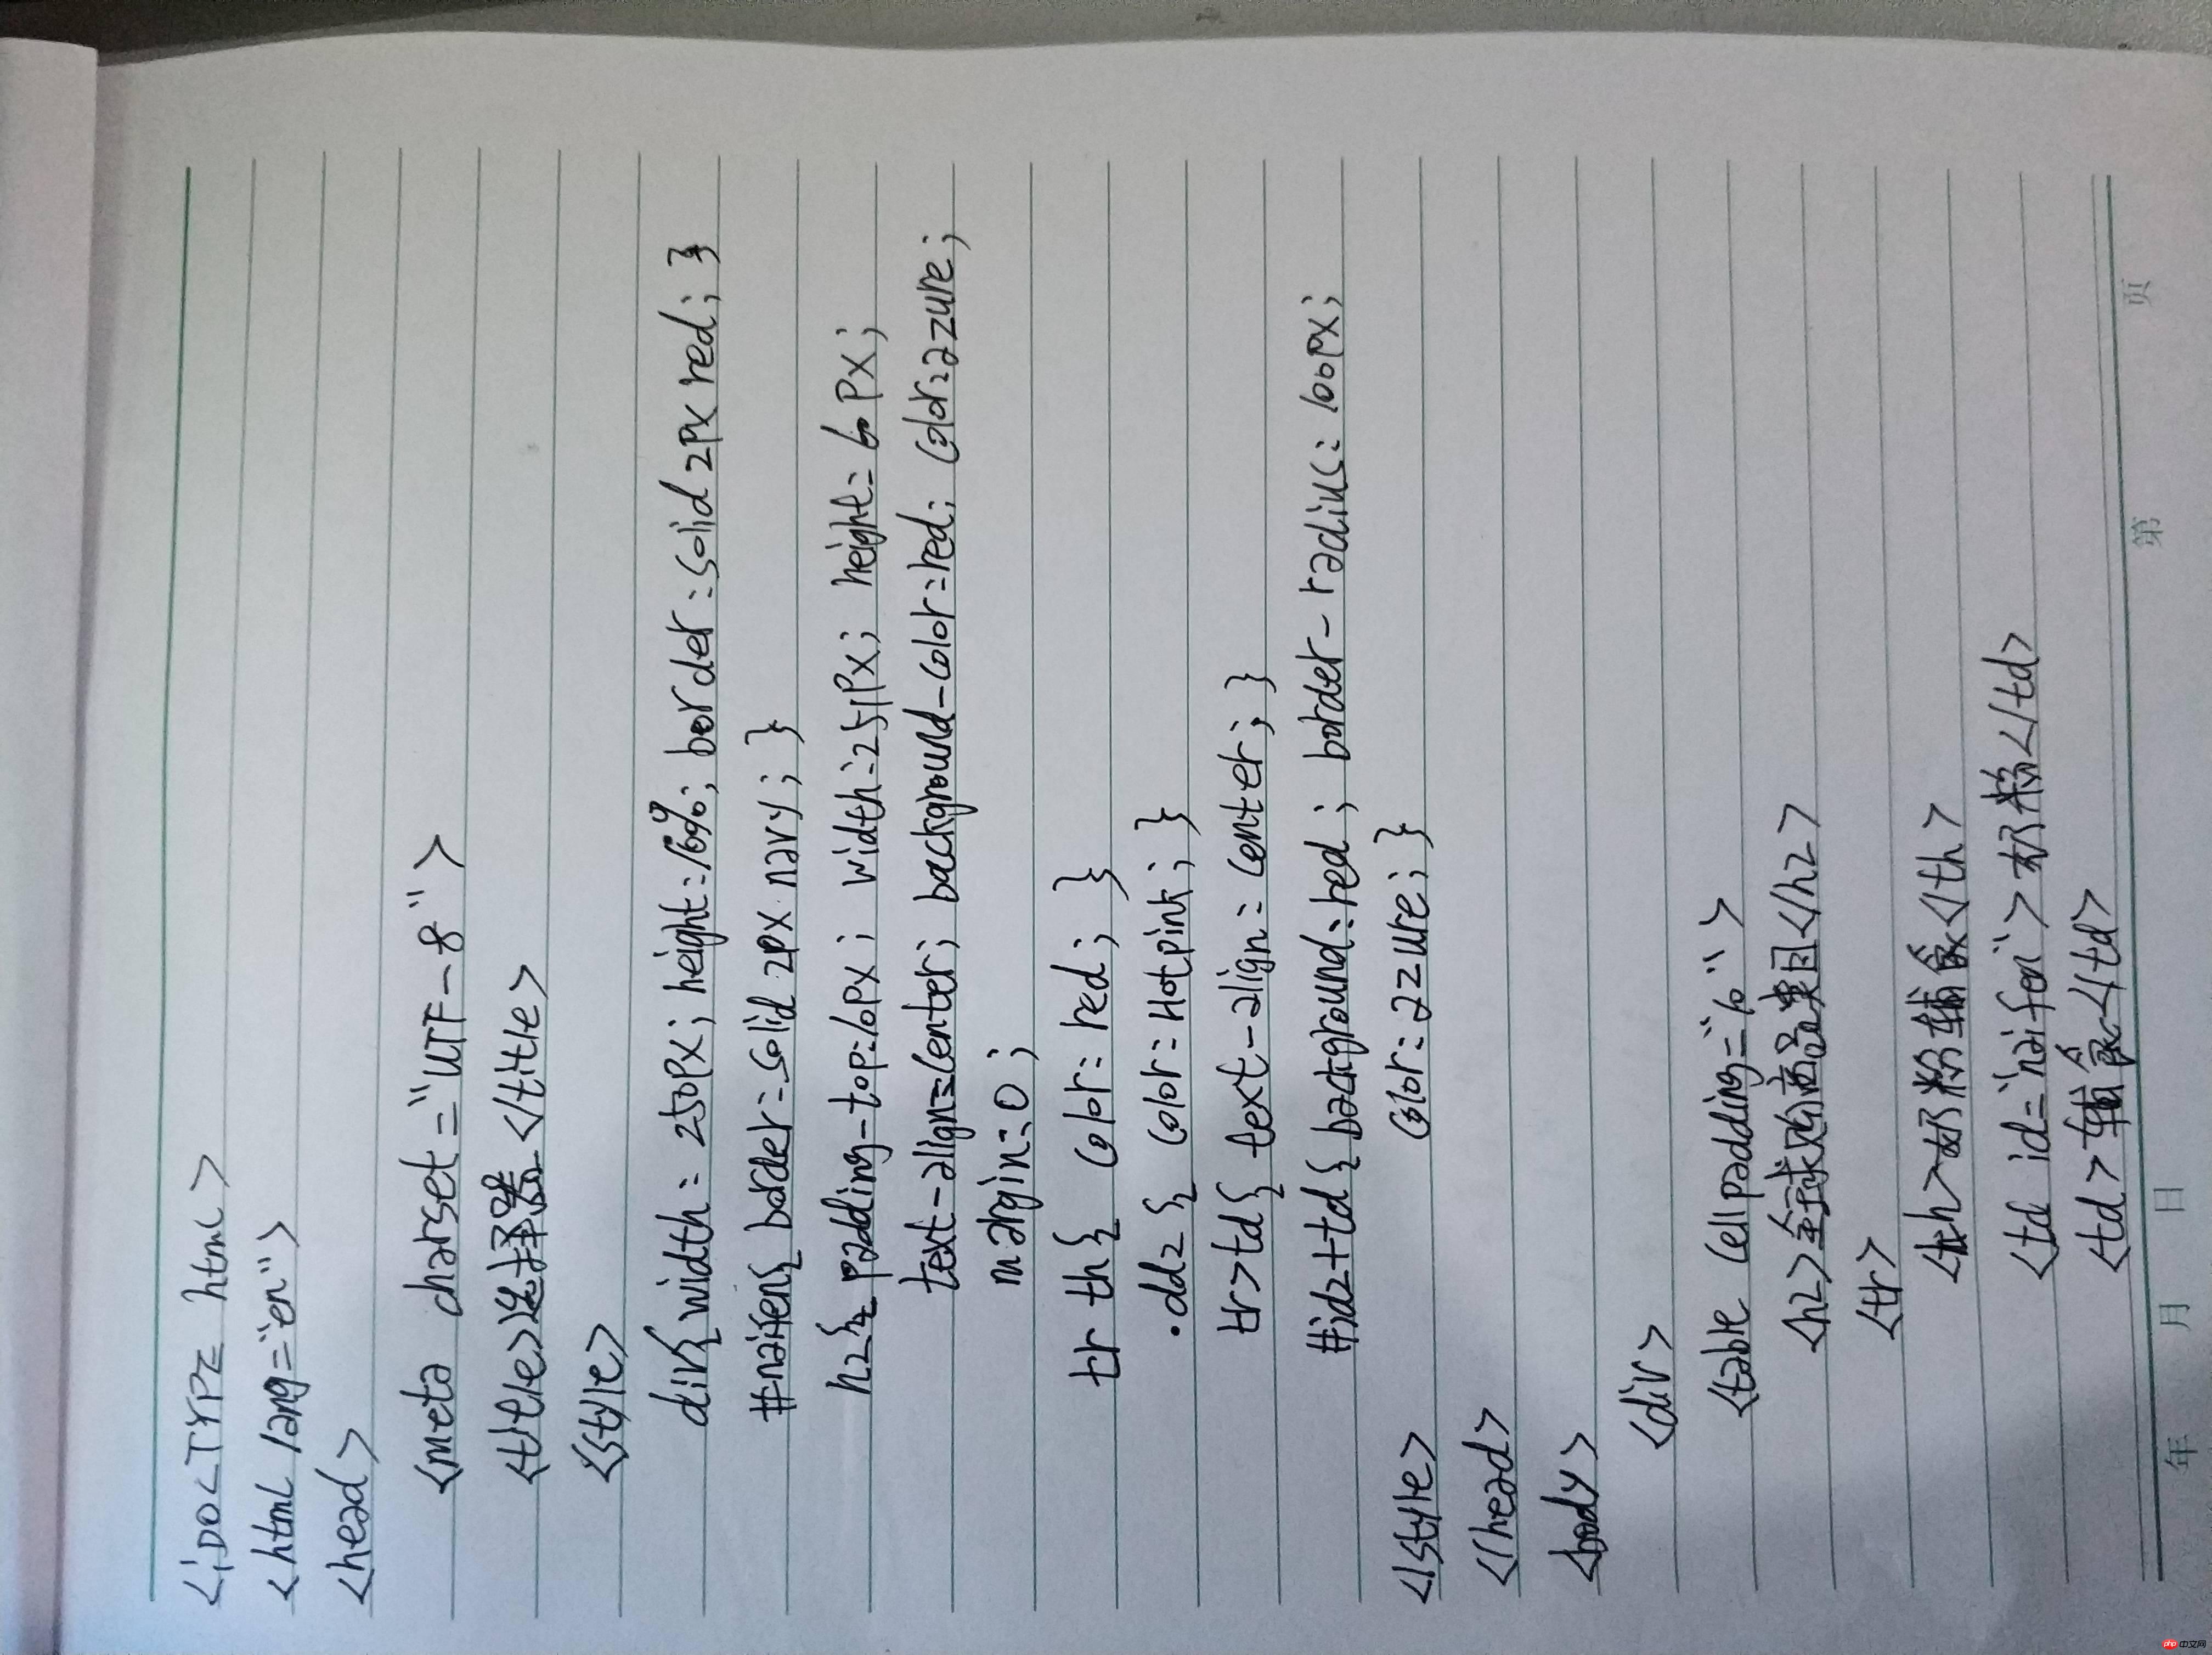 <!DOCTYPE html>
<html lang="en">
<head>
<meta charset="UTF-8">
<title>选择器</title>
<style>
div{width: 250px; height:100%; border:solid 2px red; }
#naifen{ border:solid 2px navy; }
h2{ padding-top:10px; width:251px; height:60px;
text-align:center; background-color:red; color:azure;
margin:0;
tr th{ color:red; }
.dd2{ color:Hotpink; }
tr>td{ text-align:center; }
#id2+td{ background:red; border-radius:100px;
color:azure; }
</style>
</head>
<body>
<div>
<table cellpadding="10">
<h2>全球购商品类目</h2>
<tr>
<th>奶粉辅食</th>
<td id="naifen">奶粉</td>
<td>辅食</td>
年 月 日 第 页
php 中文网